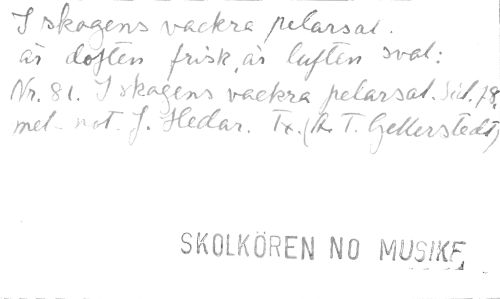 I skogens vackra pelarsal.
är doften frisk, är luften sval:
Nr. 81. I skogens vackra pelarsal. Sid. 78.
mel. not. J. Hedar. Tx. (A. T. Gellerstedt)
SKOLKÖREN NO MUSIKE